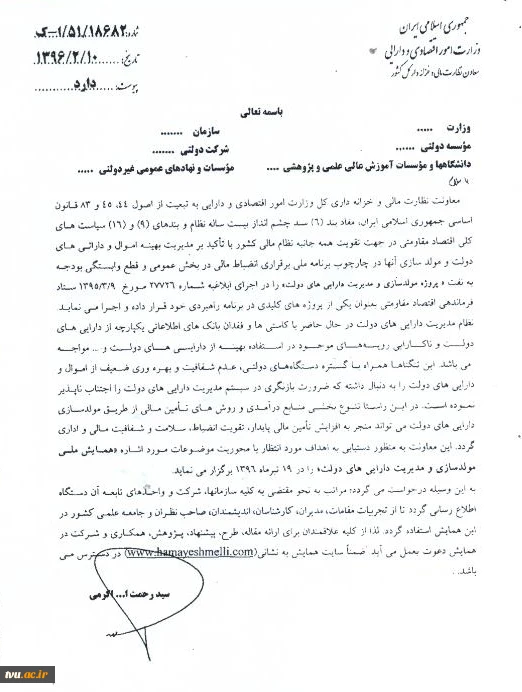 جمهوری اسلامی ایران
وزارت امور اقتصادی و دارایی
معاون نظارت مالی و خزانه دار کل کشور
شماره: ۱/۵۱/۱۸۶۸۲-ک
تاریخ: ۱۳۹۶/۲/۱۰
پیوست: ..... دارد
باسمه تعالی
وزارت ..... سازمان .......
مؤسسه دولتی ...... شرکت دولتی .......
دانشگاهها و مؤسسات آموزش عالی علمی و پژوهشی .... مؤسسات و نهادهای عمومی غیردولتی .....
با سلام
معاونت نظارت مالی و خزانه داری کل وزارت امور اقتصادی و دارایی به تبعیت از اصول ۴۴، ۴۵ و ۸۳ قانون
اساسی جمهوری اسلامی ایران، مفاد بند (۶) سند چشم انداز بیست ساله نظام و بندهای (۹) و (۱۶) سیاست های
کلی اقتصاد مقاومتی در جهت تقویت همه جانبه نظام مالی کشور با تأکید بر مدیریت بهینه اموال و دارائی های
دولت و مولد سازی آنها در چارچوب برنامه ملی برقراری انضباط مالی در بخش عمومی و قطع وابستگی بودجه
به نفت « پروژه مولدسازی و مدیریت دارایی های دولت» را در اجرای ابلاغیه شماره ۲۷۷۲۶ مورخ ۱۳۹۵/۳/۹ ستاد
فرماندهی اقتصاد مقاومتی بعنوان یکی از پروژه های کلیدی در برنامه راهبردی خود قرار داده و اجرا می نماید.
نظام مدیریت دارایی های دولت در حال حاضر با کاستی ها و فقدان بانک های اطلاعاتی یکپارچه از دارایی های
دولت و ناکارایی رویه‌های موجود در استفاده بهینه از دارایی های دولت و ... مواجه
می باشد. این تنگناها همراه با گستره دستگاههای دولتی، عدم شفافیت و بهره وری ضعیف از اموال و
دارایی های دولت را به دنبال داشته که ضرورت بازنگری در سیستم مدیریت دارایی های دولت را اجتناب ناپذیر
نموده است. در این راستا تنوع بخشی منابع درآمدی و روش های تأمین مالی از طریق مولدسازی
دارایی های دولت می تواند منجر به افزایش تأمین مالی پایدار، تقویت انضباط، سلامت و شفافیت مالی و اداری
گردد. این معاونت به منظور دستیابی به اهداف مورد انتظار با محوریت موضوعات مورد اشاره «همایش ملی
مولدسازی و مدیریت دارایی های دولت» را در ۱۹ تیرماه ۱۳۹۶ برگزار می نماید.
به این وسیله درخواست می گردد؛ مراتب به نحو مقتضی به کلیه سازمانها، شرکت و واحدهای تابعه آن دستگاه
اطلاع رسانی گردد تا از تجربیات مقامات، مدیران، کارشناسان، اندیشمندان، صاحب نظران و جامعه علمی کشور در
این همایش استفاده گردد. لذا از کلیه علاقمندان برای ارائه مقاله، طرح، پیشنهاد، پژوهش، همکاری و شرکت در
همایش دعوت بعمل می آید. ضمناً سایت همایش به نشانی (www.hamayeshmelli.com) در دسترس می
باشد.
سید رحمت ا... اکرمی
tvu.ac.ir